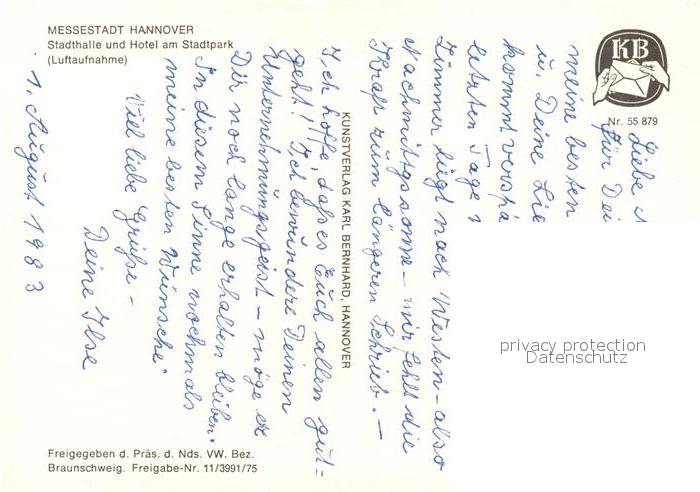 MESSESTADT HANNOVER
Stadthalle und Hotel am Stadtpark
(Luftaufnahme)
KB
Nr. 55 879
KUNSTVERLAG KARL BERNHARD, HANNOVER
Liebe
Für Dei
meine besten
u. Deine Lie
kommt verspä
letzten Tage
Zimmer liegt nach Westen – also
Nachmittagssonne – mir fehlt die
Kraft zum längeren Schrieb. –
Ich hoffe, daß es Euch allen gut-
geht! Ich bewundere Deinen
Unternehmungsgeist – möge er
Dir noch lange erhalten bleiben.
In diesem Sinne nochmals
meine besten Wünsche.
Viel liebe Grüße –
Deine Ilse
1. August 1983
privacy protection
Datenschutz
Freigegeben d. Präs. d. Nds. VW. Bez.
Braunschweig. Freigabe-Nr. 11/3991/75